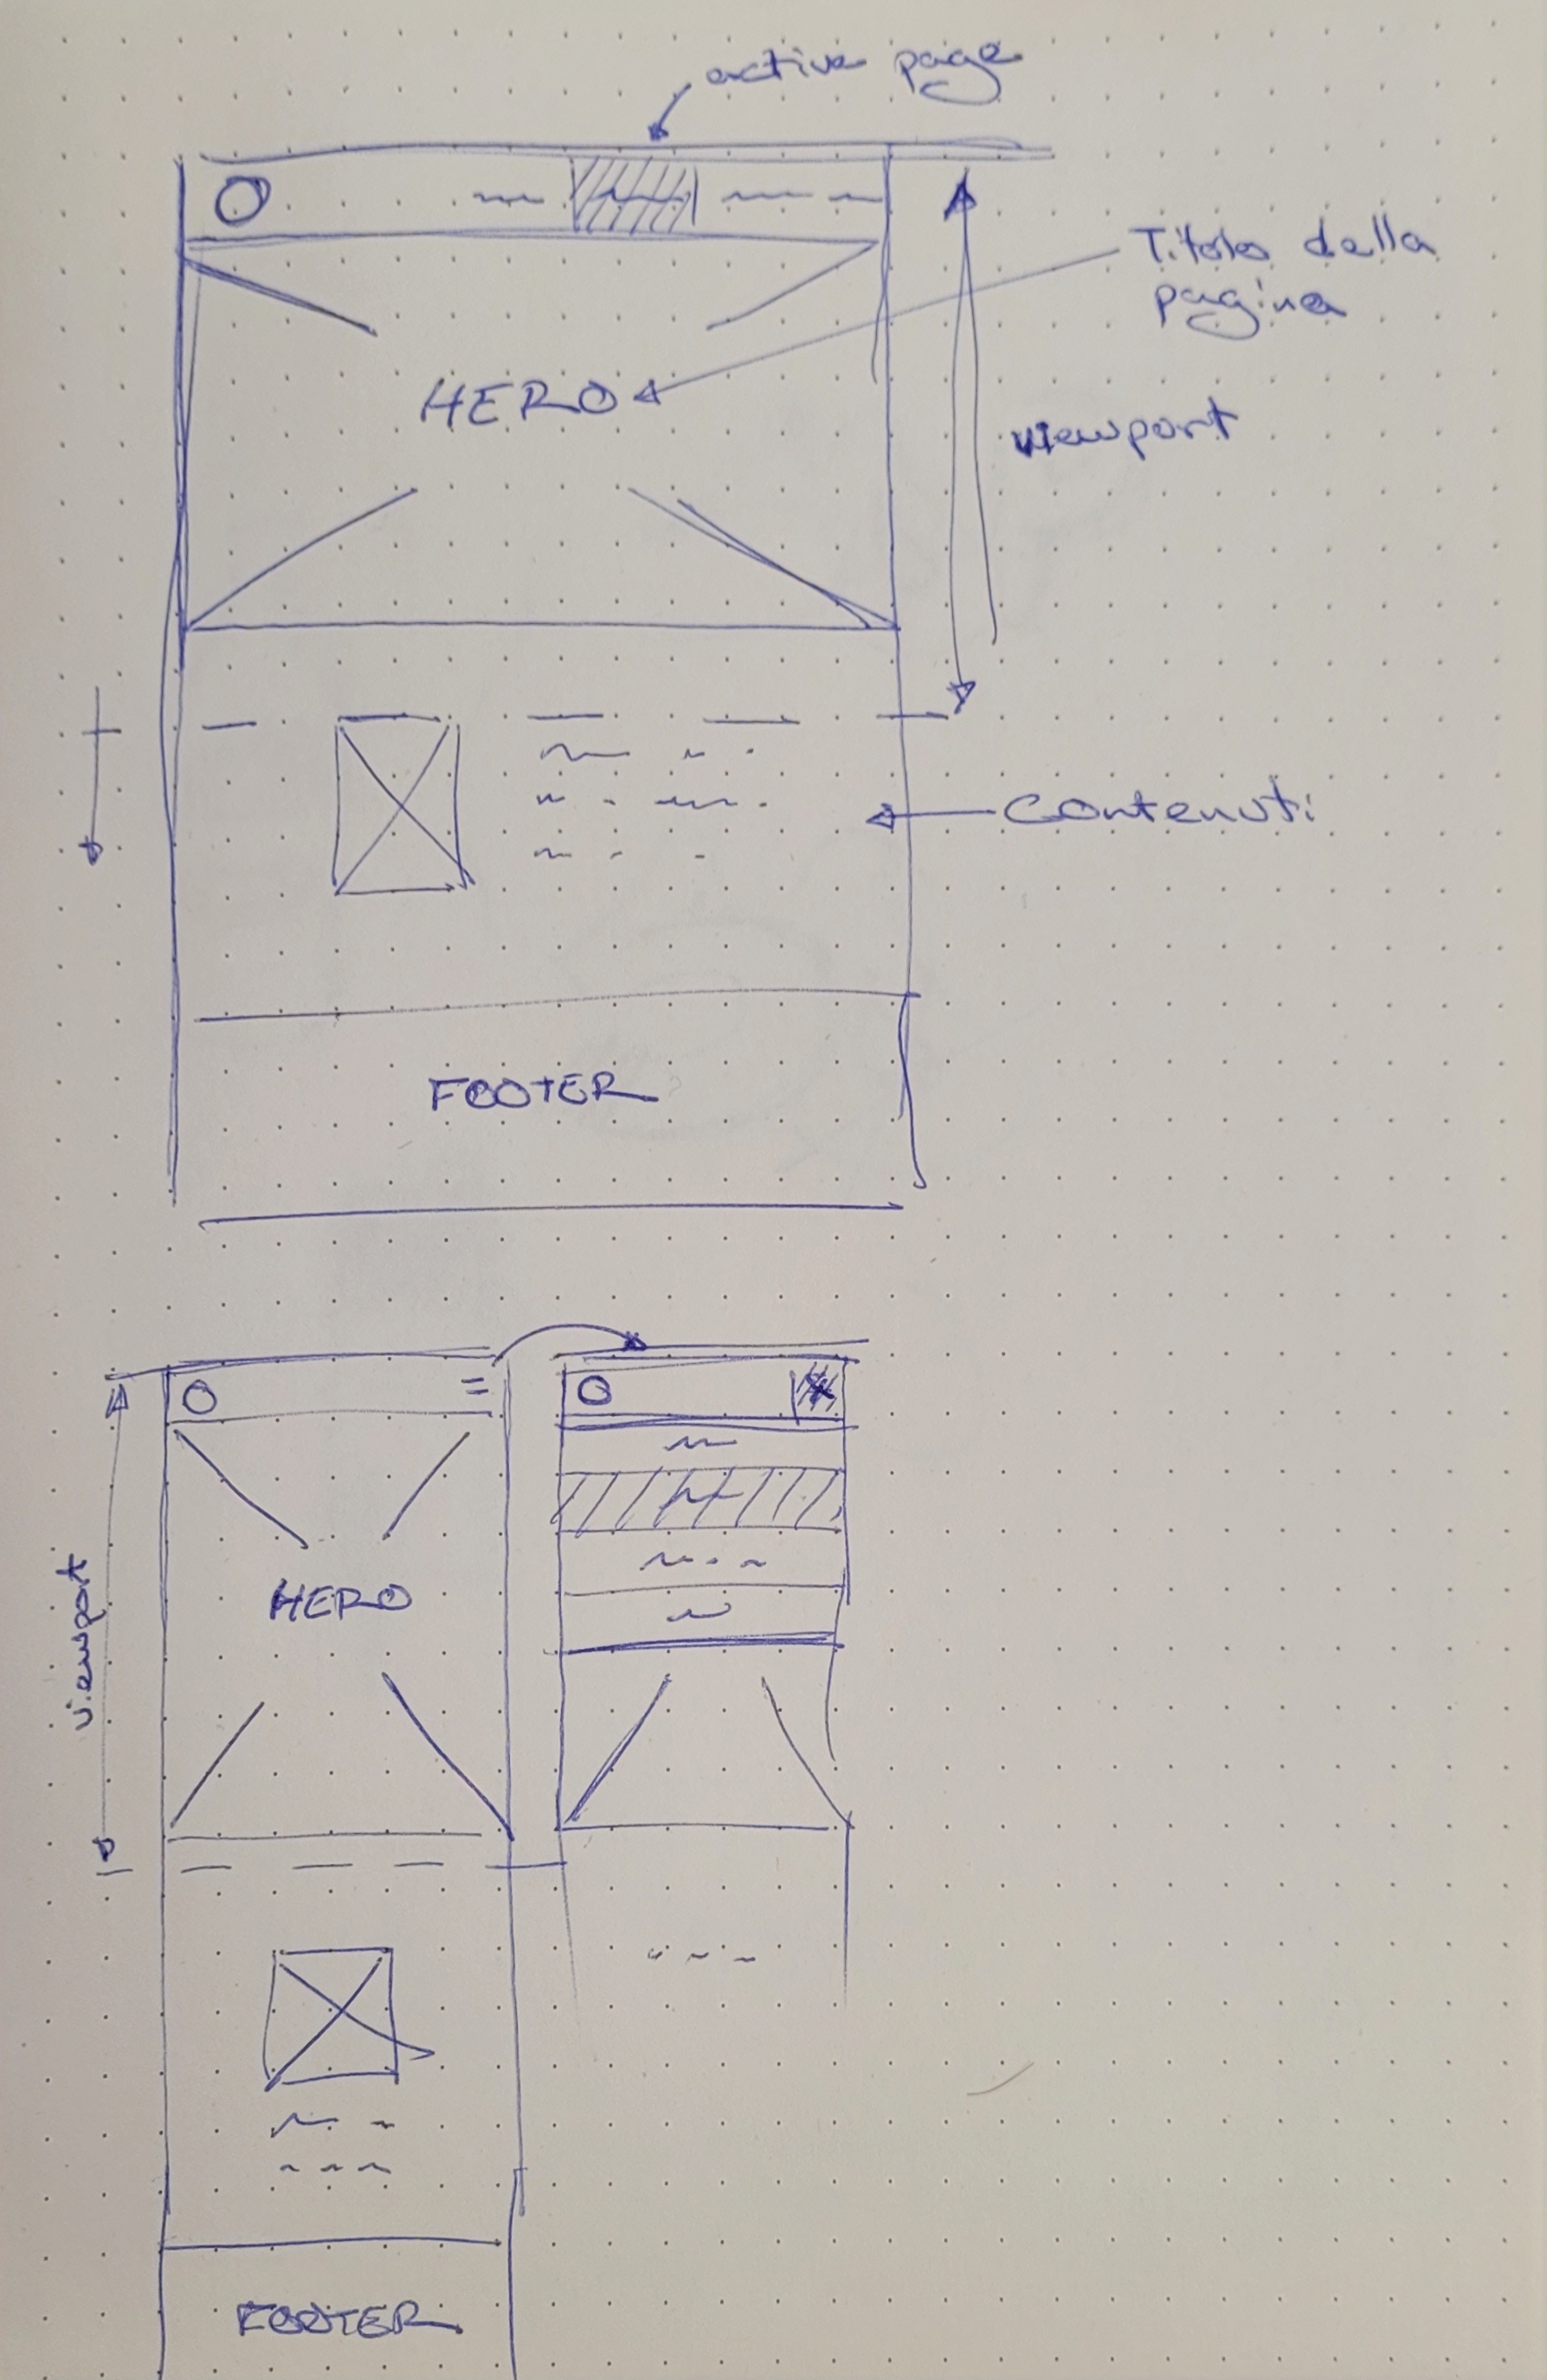 active page
Titolo della
pagina
HERO
viewport
Contenuti
FOOTER
HERO
viewport
FOOTER